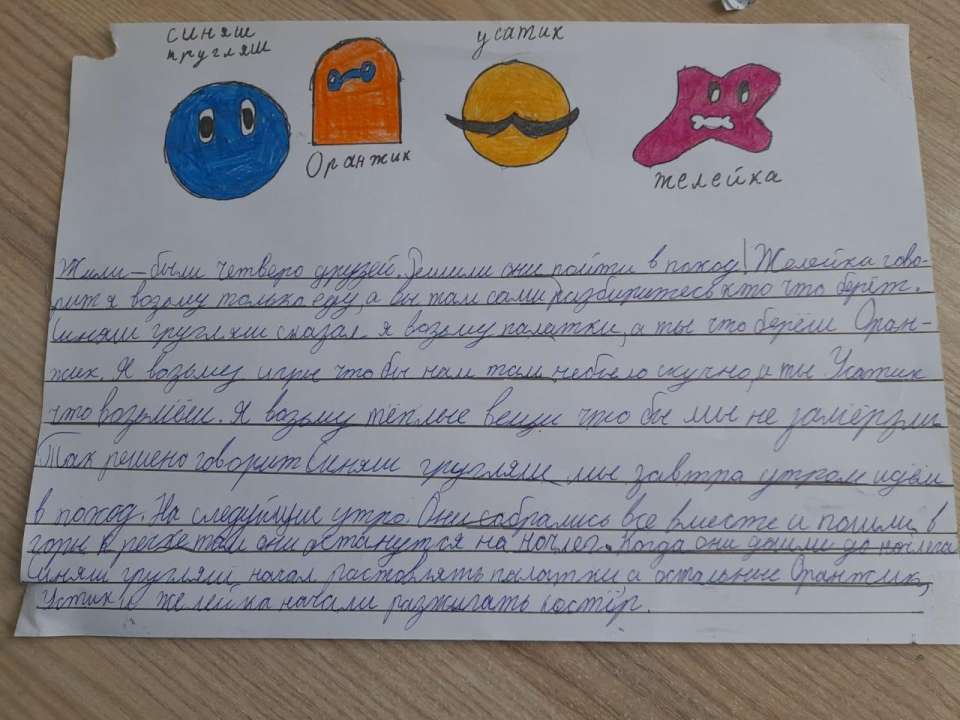 синяш
кругляш
Оранжик
усатик
желейка
Жили-были четверо друзей. Решили они пойти в поход! Желейка гово-
рит я возьму только еду, а вы там сами разбиритесь кто что берёт.
Синяш гругляш сказал я возьму палатки, а ты что берёш Оран-
жик. Я возьму игры что бы нам там небыло скучно, а ты Усатик
что возьмёш. Я возьму тёплые вещи что бы мы не замёрзли
Так решено говорит Синяш групляш мы завтра утром идём
в поход. На следующие утро Они собрались все вместе и пошли в
горы к они останутся на ночлег. Когда они дошли до ночлега
Синяш групляш начал растовлять палатки а остальные Оранжик,
Устик и желейка начали разжигать костёр.